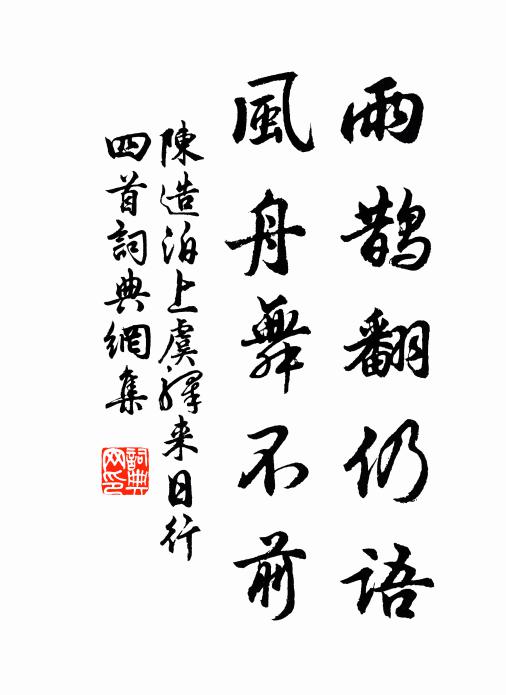 雨鵲翻仍語
風舟舞不前
陳造泊上虞驛来日行
四首詞典網集
詞典网印